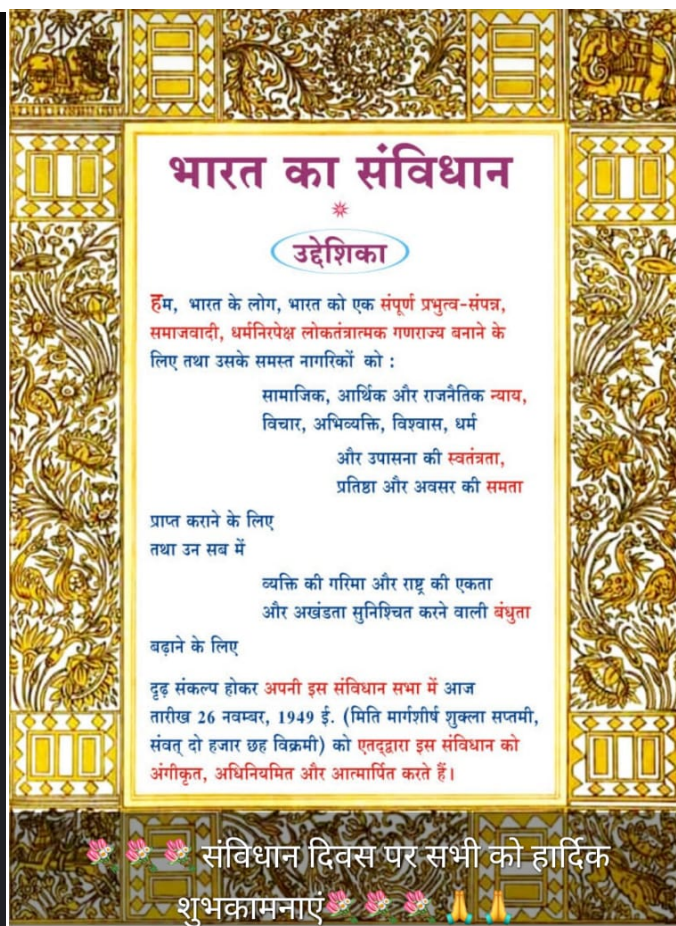 भारत का संविधान
उद्देशिका
हम, भारत के लोग, भारत को एक संपूर्ण प्रभुत्व-संपन्न,
समाजवादी, धर्मनिरपेक्ष लोकतंत्रात्मक गणराज्य बनाने के
लिए तथा उसके समस्त नागरिकों को :
सामाजिक, आर्थिक और राजनैतिक न्याय,
विचार, अभिव्यक्ति, विश्वास, धर्म
और उपासना की स्वतंत्रता,
प्रतिष्ठा और अवसर की समता
प्राप्त कराने के लिए
तथा उन सब में
व्यक्ति की गरिमा और राष्ट्र की एकता
और अखंडता सुनिश्चित करने वाली बंधुता
बढ़ाने के लिए
दृढ़ संकल्प होकर अपनी इस संविधान सभा में आज
तारीख 26 नवम्बर, 1949 ई. (मिति मार्गशीर्ष शुक्ला सप्तमी,
संवत् दो हजार छह विक्रमी) को एतद्द्वारा इस संविधान को
अंगीकृत, अधिनियमित और आत्मार्पित करते हैं।
💐💐💐संविधान दिवस पर सभी को हार्दिक
शुभकामनाएं💐💐💐🙏🙏